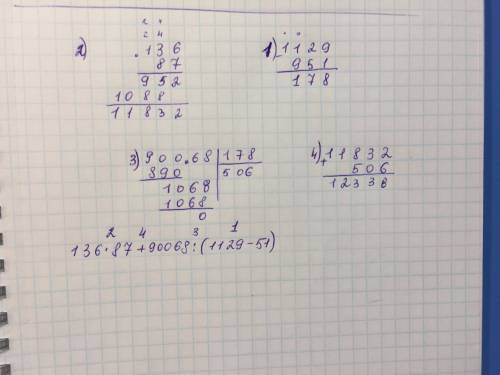 2 4
2 4
2) .136
87
952
1088
11832
1) -1129
951
178
3) 900.68 178
890 506
1068
1068
0
4) +11832
506
12338
2 4 3 1
136·87+90068:(1129-51)